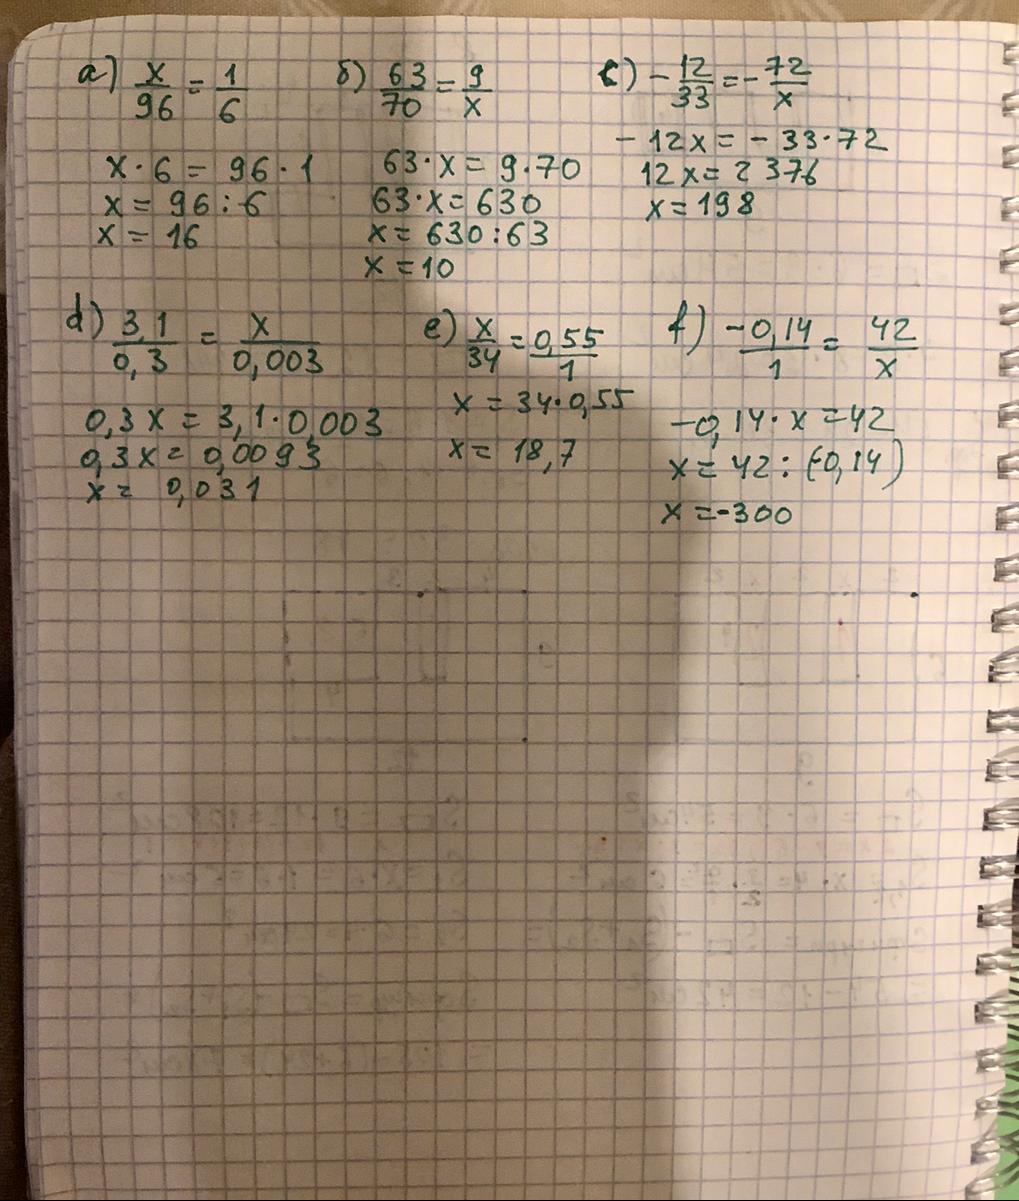 a) x/96 = 1/6
x · 6 = 96 · 1
x = 96 : 6
x = 16
б) 63/70 = 9/x
63 · x = 9 · 70
63 · x = 630
x = 630 : 63
x = 10
c) - 12/33 = - 72/x
- 12x = - 33 · 72
12x = 2376
x = 198
d) 3,1/0,3 = x/0,003
0,3x = 3,1 · 0,003
0,3x = 0,0093
x = 0,031
e) x/34 = 0,55/1
x = 34 · 0,55
x = 18,7
f) -0,14/1 = 42/x
-0,14 · x = 42
x = 42 : (-0,14)
x = -300